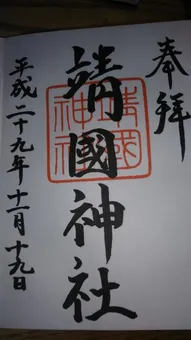 奉拝
靖國神社
平成二十九年十一月十九日
靖國
神社